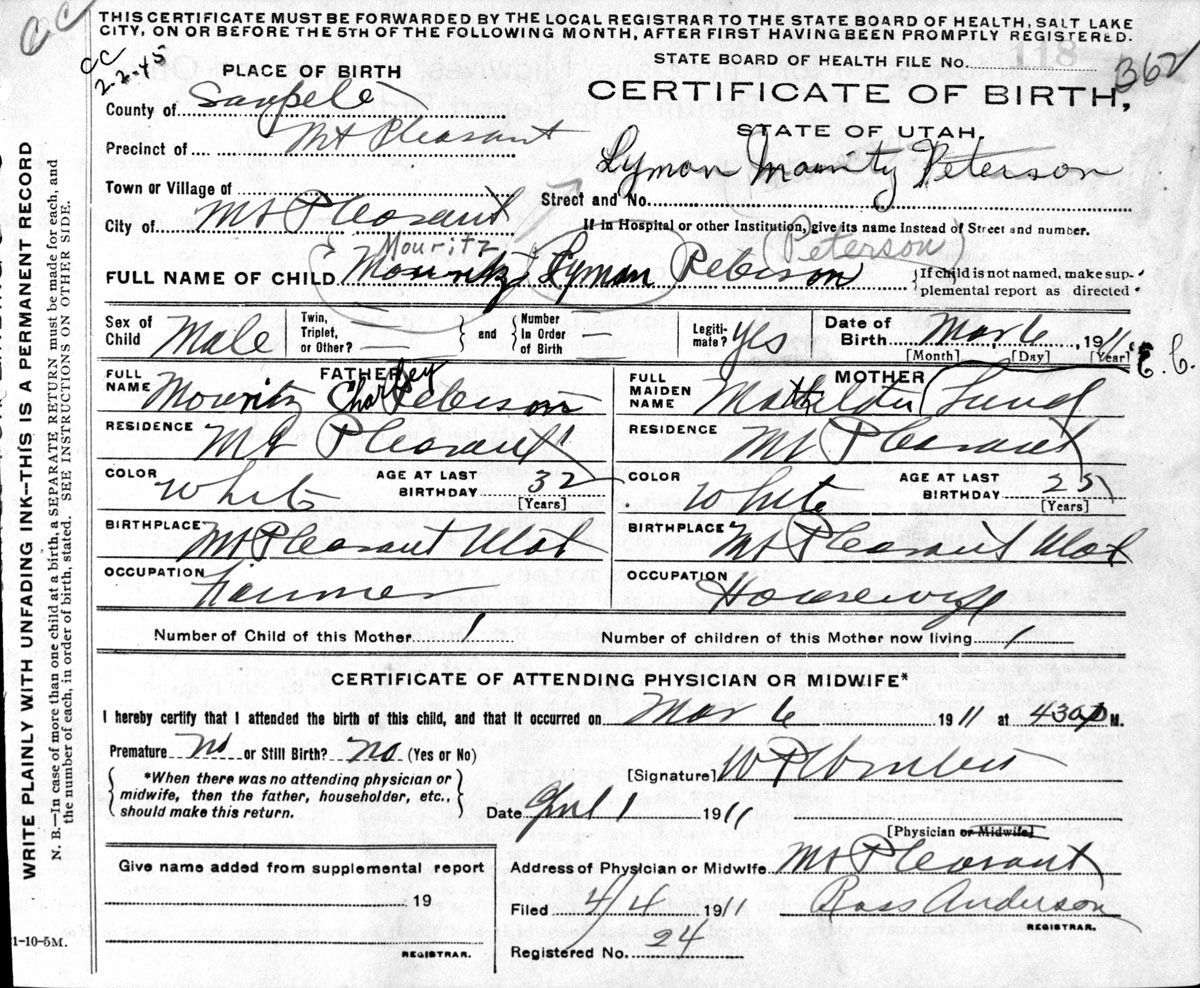 THIS CERTIFICATE MUST BE FORWARDED BY THE LOCAL REGISTRAR TO THE STATE BOARD OF HEALTH, SALT LAKE
CITY, ON OR BEFORE THE 5TH OF THE FOLLOWING MONTH, AFTER FIRST HAVING BEEN PROMPTLY REGISTERED.
CC
CC
2-2-45
STATE BOARD OF HEALTH FILE No. 118
362
PLACE OF BIRTH
CERTIFICATE OF BIRTH,
STATE OF UTAH.
County of Sanpete
Precinct of Mt Pleasant
Lyman Mouritz Peterson
Town or Village of
Street and No.
City of Mt Pleasant
If in Hospital or other Institution, give its name Instead of Street and number.
Mouritz (Peterson)
FULL NAME OF CHILD Mouritz Lyman Peterson
If child is not named, make sup-
plemental report as directed
Sex of Child Male
Twin, Triplet, or Other?
and
Number In Order of Birth
Legiti-mate? Yes
Date of Birth Mar 6, 1911
[Month] [Day] [Year]
E. C.
FATHER
FULL NAME Mouritz Charley Peterson
RESIDENCE Mt Pleasant
COLOR White
AGE AT LAST BIRTHDAY 32
[Years]
BIRTHPLACE Mt Pleasant Utah
OCCUPATION Farmer
MOTHER
FULL MAIDEN NAME Lund
RESIDENCE Mt Pleasant
COLOR White
AGE AT LAST BIRTHDAY 25
[Years]
BIRTHPLACE Mt Pleasant Utah
OCCUPATION Housewife
Number of Child of this Mother 1
Number of children of this Mother now living 1
CERTIFICATE OF ATTENDING PHYSICIAN OR MIDWIFE*
I hereby certify that I attended the birth of this child, and that it occurred on Mar 6 1911 at 430 P M.
Premature No or Still Birth? No (Yes or No)
*When there was no attending physician or
midwife, then the father, householder, etc.,
should make this return.
[Signature] W P
Date 1 1911
[Physician or Midwife]
Give name added from supplemental report
19
REGISTRAR.
Address of Physician or Midwife Mt Pleasant
Filed 4/4 1911 Ross Anderson
REGISTRAR.
Registered No. 24
1-10-5M.
WRITE PLAINLY WITH UNFADING INK--THIS IS A PERMANENT RECORD
N. B.—In case of more than one child at a birth, a SEPARATE RETURN must be made for each, and
the number of each, in order of birth, stated. SEE INSTRUCTIONS ON OTHER SIDE.